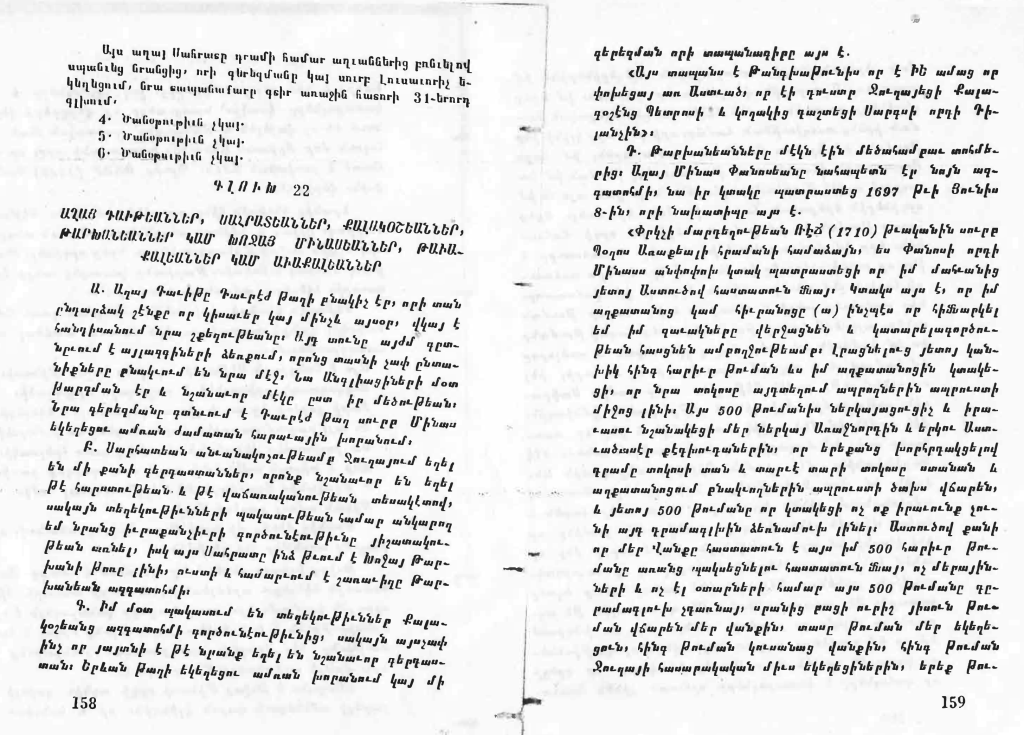 Այս աղայ Սահրատը դրամի համար աղւաններից բռնւելով
սպանւեց նրանցից, որի գերեզմանը կայ սուրբ Լուսաւորիչ ե-
կեղեցում, նրա տապանաքարը գտիր առաջին հատորի 31-երորդ
գլխում.
4. Ծանօթութիւն չկայ:
5. Ծանօթութիւն չկայ.
6. Ծանօթութիւն չկայ.
ԳԼՈՒԽ 22
ԱՂԱՅ ԴԱՒԹԵԱՆՆԵՐ, ՍԱՀՐԱՏԵԱՆՆԵՐ, ՔԱԼԱԿՕՇԵԱՆՆԵՐ,
ԹԱՐԽԱՆԵԱՆՆԵՐ ԿԱՄ ԽՈՋԱՅ ՄԻՆԱՍԵԱՆՆԵՐ, ԹԱՒԱ-
ՔԱԼԵԱՆՆԵՐ ԿԱՄ ԱՒԱՔԱԼԵԱՆՆԵՐ
Ա. Աղայ Դաւիթը Դաւրէժ թաղի բնակիչ էր, որի տան
ընդարձակ շէնքը որ կիսաւեր կայ մինչև այսօր, վկայ է
հանդիսանում նրա շքեղութեանը: Այդ տունը այժմ գըտ-
նըւում է այլազգիների ձեռքում, որոնց տասնի չափ ընտա-
նիքները բնակւում են նրա մէջ: Նա Անգլիացիների մօտ
թարգման էր և նշանաւոր մէկը ըստ իր մեծութեան:
Նրա գերեզմանը գտնւում է Դաւրէժ թաղ սուրբ Մինաս
եկեղեցու ամռան ժամատան հարաւային խորանում:
Բ. Սարհատեան անւանակոչութեամբ Ջուղայում եղել
են մի քանի գերդաստաններ, որոնք նշանաւոր են եղել
թէ հարստութեան և թէ վաճառականութեան տեսակէտով,
սակայն տեղեկութիւնների պակասութեան համար անկարող
եմ նրանց իւրաքանչիւրի գործունէութիւնը յիշատակու-
թեան առնել, իսկ այս Սահրատը ինձ թւում է Խոջայ Թար-
խանի թոռը լինի, ուստի և համարւում է շառաւիղը Թար-
խանեան ազգատոհմի:
Գ. Իմ մօտ պակասում են տեղեկութիւններ Քալա-
կօշեանց ազգատոհմի գործունէութիւնից, սակայն այսչափ
ինչ որ յայտնի է թէ նրանք եղել են նշանաւոր գերդաս-
տան: Երևան թաղի եկեղեցու ամռան խորանում կայ մի
158
գերեզման որի տապանագիրը այս է.
«Այս տապանս է Թանգխաթունիս որ է ԻԵ ամաց որ
փոխեցայ առ Աստւած, որ էի դուստր Ջուղայեցի Քալա-
գօշէնց Պետրոսի և կողակից դաշտեցի Սարգսի որդի Դի-
լանչին»:
Դ. Թարխանեանները մէկն էին մեծահամբաւ տոհմե-
րից: Աղայ Մինաս Փանոսեանը նահապետն էր նոյն ազ-
գատոհմի, նա իր կտակը պատրաստեց 1697 թւի Յունիս
8-ին, որի նախատիպը այս է.
«Փրկչի մարդեղութեան ՌՒՃ (1710) թւականին սուրբ
Պօղոս Առաքեալի հրամանի համաձայն, ես Փանոսի որդի
Մինասս անփոփոխ կտակ պատրաստեցի որ իմ մահւանից
յետոյ Աստուծով հաստատուն մնայ: Կտակս այս է, որ իմ
աղքատանոց կամ հիւրանոցը (ա) ինչպէս որ հիմնարկել
եմ իմ զաւակները վերջացնեն և կատարելագործու-
թեան հասցնեն ամբողջութեամբ: Լրացնելուց յետոյ կան-
խիկ հինգ հարիւր թուման ևս իմ աղքատանոցին կտակե-
ցի, որ նրա տոկոսը այդտեղում ապրողներին ապրուստի
միջոց լինի: Այս 500 թումանիս ներկայացուցիչ և իրա-
ւասու նշանակեցի մեր ներկայ Առաջնորդին և երկու Աստ-
ւածասէր քէդխուդաներին, որ երեքանց խորհրդակցելով
դրամը տոկոսի տան և տարւէ տարի տոկոսը ստանան և
աղքատանոցում բնակւողներին ապրուստի ծախս վճարեն,
և յետոյ 500 թումանը որ կտակեցի ոչ ոք իրաւունք չու-
նի այդ դրամագլխին ձեռնամուխ լինել: Աստուծով քանի
որ մեր Վանքը հաստատուն է այս իմ 500 հարիւր թու-
մանը առանց պակսեցնելու հաստատուն մնայ, ոչ մերային-
ների և ոչ էլ օտարների համար այս 500 թումանը դը-
րամագլուխ չդառնայ, սրանից բացի ուրիշ յիսուն թու-
ման վճարեն մեր վանքին, տասը թուման մեր եկեղե-
ցուն, հինգ թուման կուսանաց վանքին, հինգ թուման
Ջուղայի հասարակական միւս եկեղեցիներին, երեք թու-
159